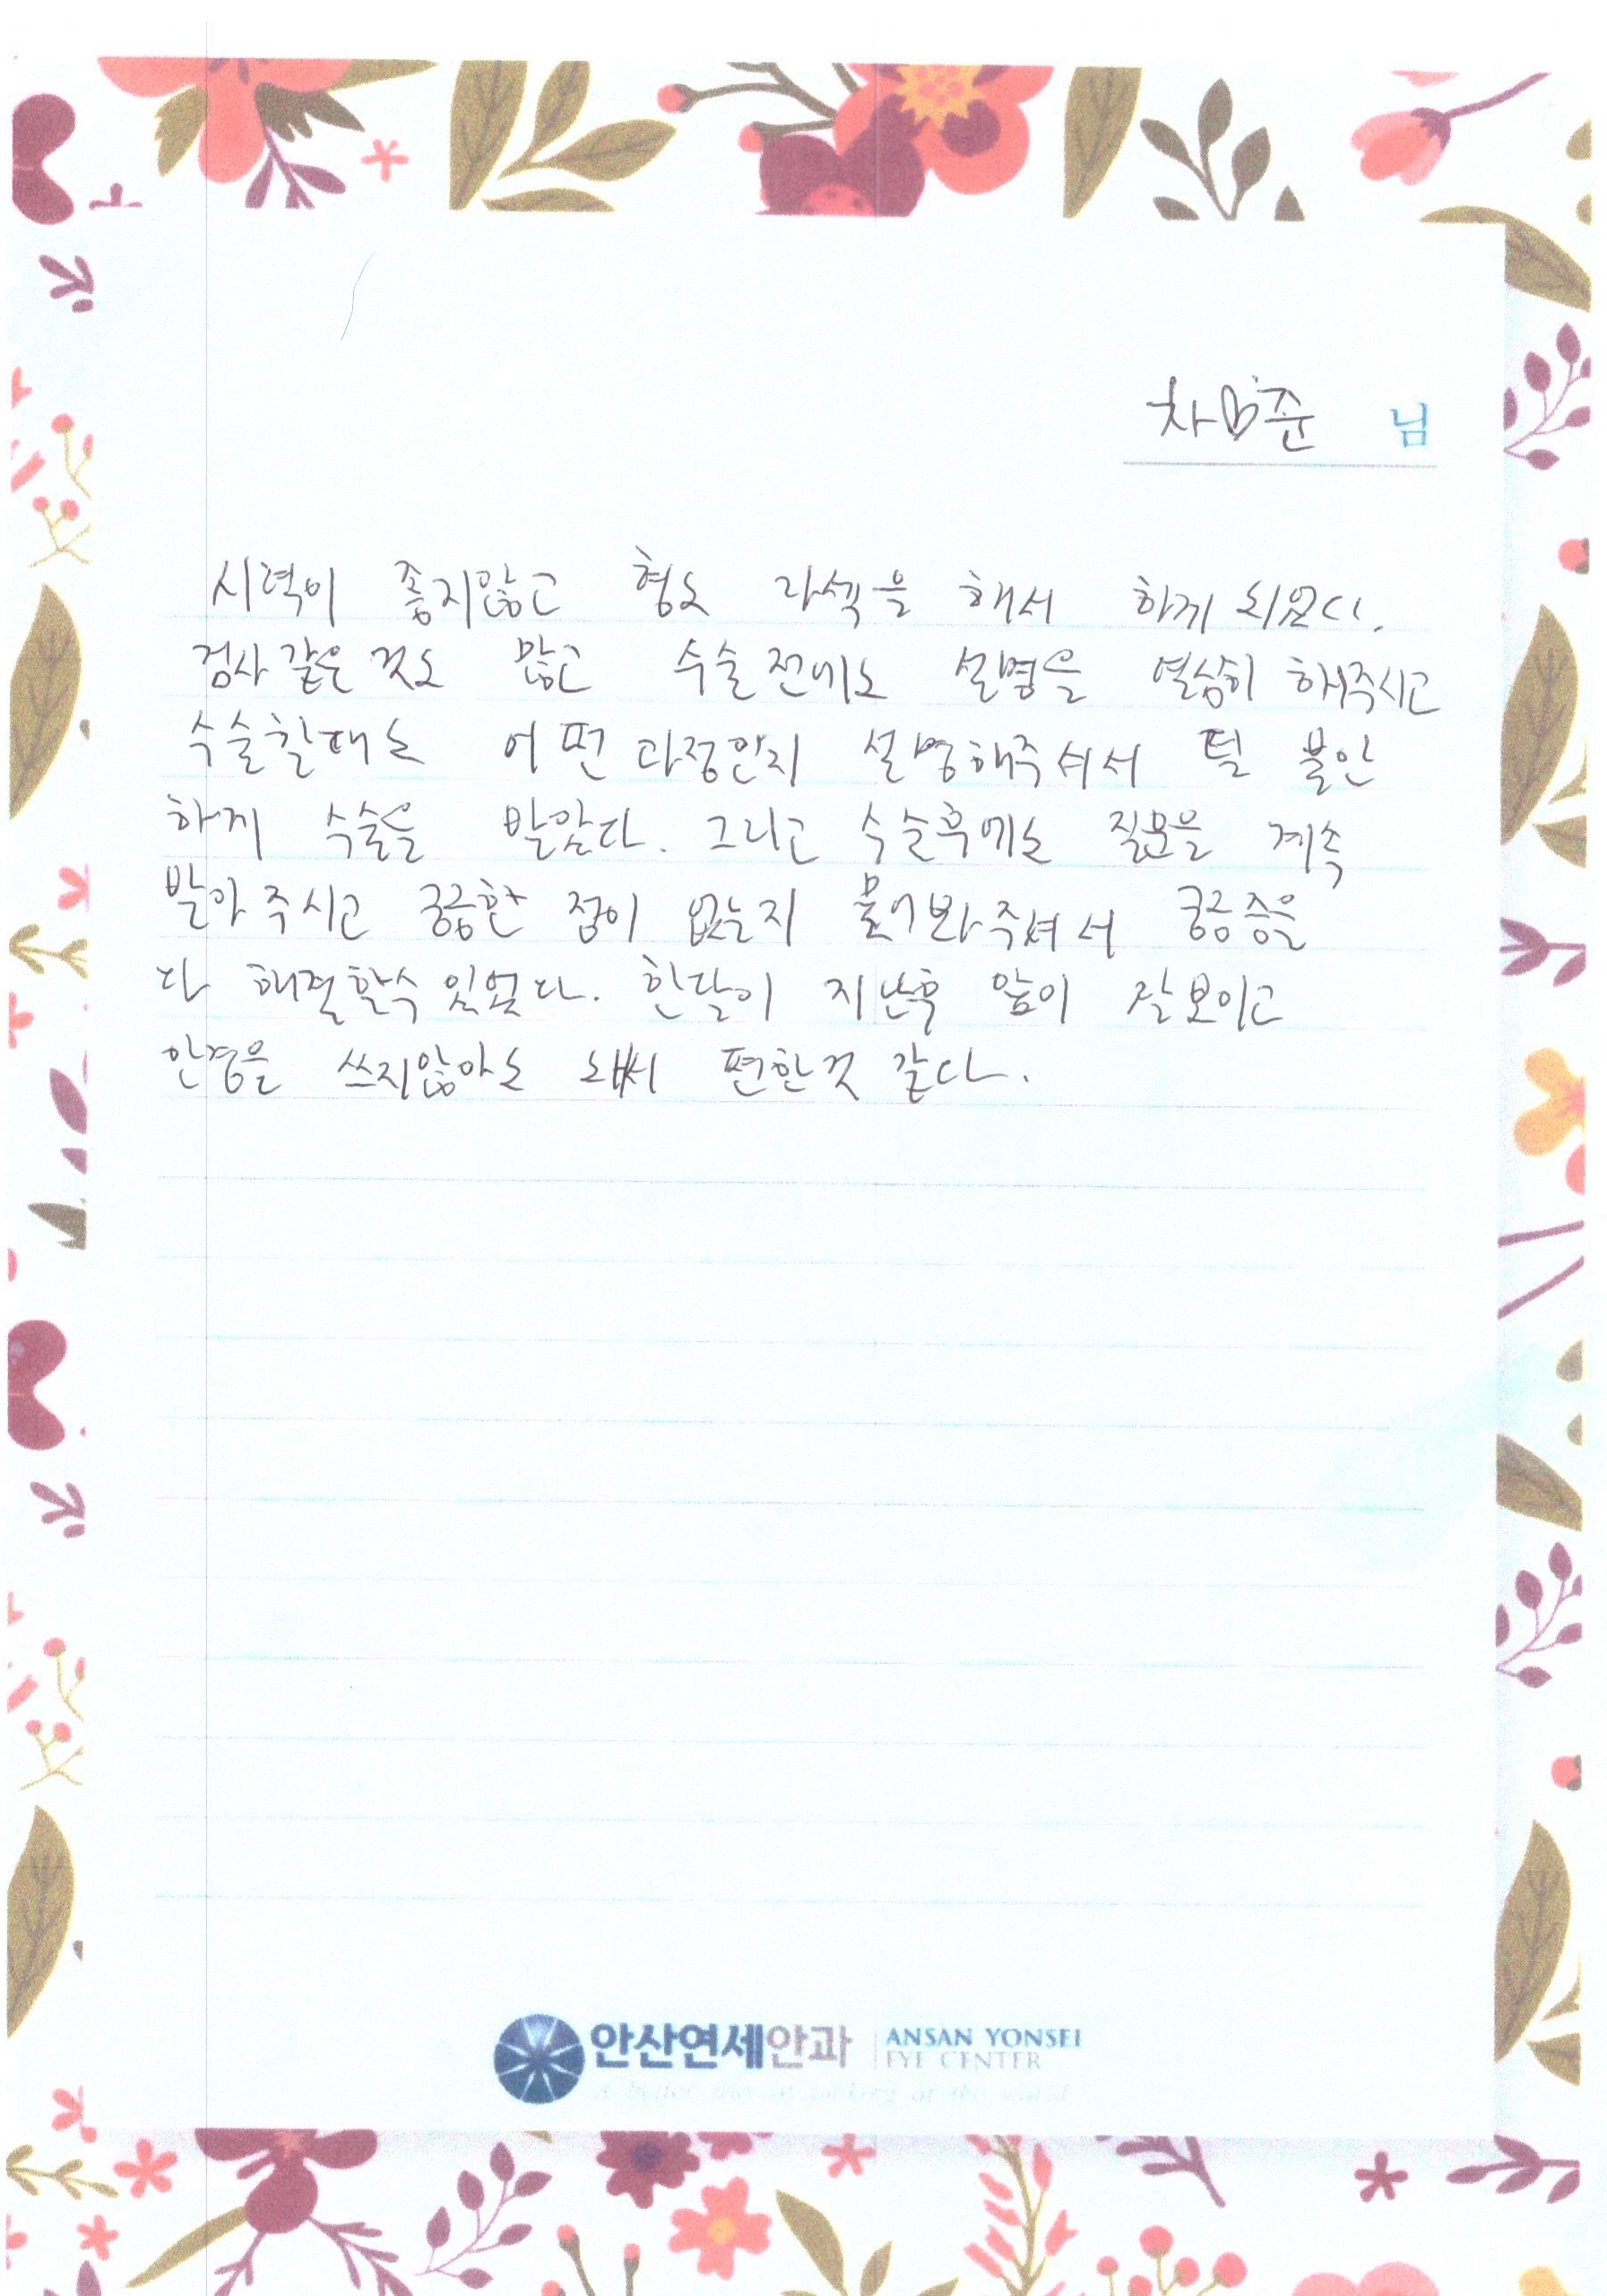 차♡준 님
시력이 좋지않고 형도 라섹을 해서 하게 되었다.
검사 같은 것도 많고 수술 전에도 설명을 열심히 해주시고
수술할때도 어떤 과정인지 설명해주셔서 덜 불안
하게 수술을 받았다. 그리고 수술후에도 질문을 계속
받아 주시고 궁금한 점이 없는지 물어봐주셔서 궁금증을
다 해결할수 있었다. 한달이 지난후 앞이 잘보이고
안경을 쓰지않아도 돼서 편한것 같다.
안산연세안과 ANSAN YONSEI
EYE CENTER